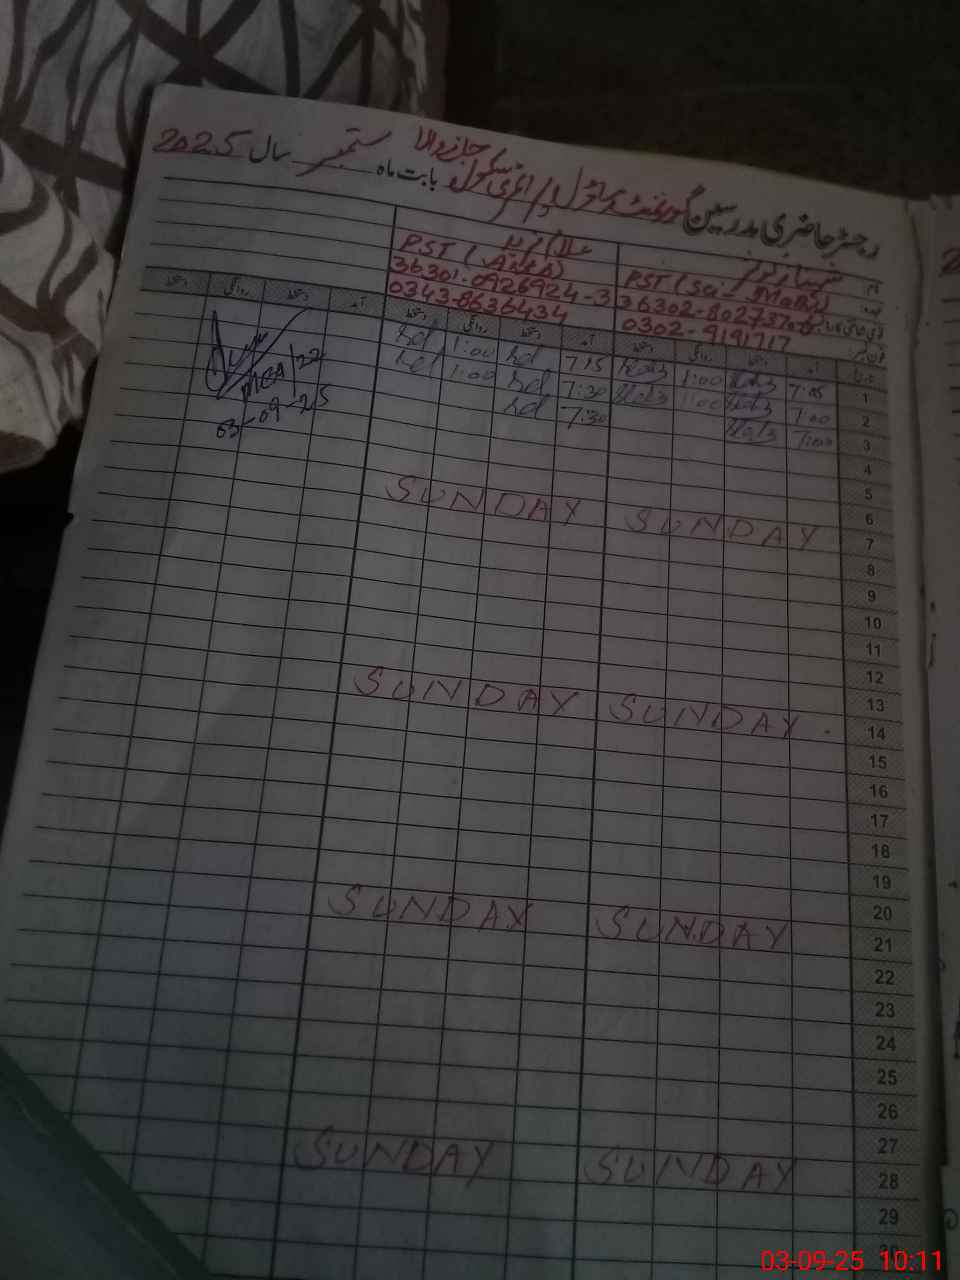 رجسٹر حاضری مدرسین گورنمنٹ ماڈل پرائمری سکول جانووالا بابت ماہ ستمبر سال 2025
نام شہناز نواز غلام فرید
عہدہ PST (Sci-Math) PST (Arts)
36301-0926924-3
0343-8636434
0302-9191717
آمد دستخط روانگی دستخط آمد دستخط روانگی دستخط آمد دستخط روانگی دستخط
1 7:05 1:00 7:15 hd 1:00 hd
2 7:00 1:00 7:30 hd 1:00 hd
3 7:00 7:30 hd
MEA/22
03-09-25
4
5
6
7 SUNDAY SUNDAY
8
9
10
11
12
13
14 SUNDAY SUNDAY
15
16
17
18
19
20
21 SUNDAY SUNDAY
22
23
24
25
26
27
28 SUNDAY SUNDAY
29
30
03-09-25 10:11